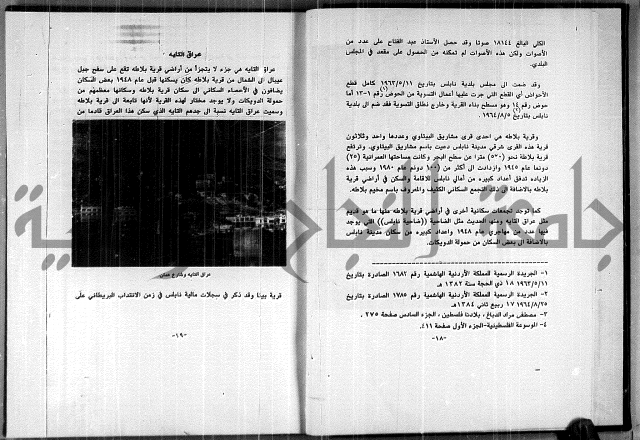 الكلي البالغ ١٨١٤٤ صوتا وقد حصل الأستاذ عبد الفتاح على عدد من
الأصوات ولكن هذه الأصوات لم تمكنه من الحصول على مقعد في المجلس
البلدي.
وقد ضمت الى مجلس بلدية نابلس بتاريخ ١٩٦٣/٥/١١ كامل قطع
الأحواض أي القطع التي جرت عليها أعمال التسوية من الحوض ١-١٣ (١) أما
حوض رقم ١٤ وهو مسطح بناء القرية وخارج نطاق التسوية فقد ضم الى بلدية
نابلس بتاريخ ١٩٦٤/٨/٥ (٢).
وقرية بلاطه هي احدى قرى مشاريق البيتاوي وعددها واحد وثلاثون
قرية هذه القرى شرقي مدينة نابلس دعيت باسم مشاريق البيتاوي. وترتفع
قرية بلاطة نحو (٥٢٠) مترا عن سطح البحر وكانت مساحتها العمرانية (٢٥)
دونما عام ١٩٤٥ وازدادت الى أكثر من (١٠٠) دونم عام ١٩٨٠ وسبب هذه
الزياده تدفق أعداد كبيره من أهالي نابلس للاقامة والسكن في أراضي قرية
بلاطه بالاضافة الى ذلك التجمع السكاني الكثيف والمعروف باسم مخيم بلاطه.
كما توجد تجمعات سكانية أخرى في أراضي قرية بلاطه منها ما هو قديم
مثل عراق التايه ومنها الحديث مثل الضاحية (ضاحية نابلس) التي يوجد
فيها عدد من مهاجري عام ١٩٤٨ واعداد كبيره من سكان مدينة نابلس
بالاضافة الى بعض السكان من حمولة الدويكات.
١- الجريدة الرسمية للمملكة الأردنية الهاشمية رقم ١٦٨٢ الصادرة بتاريخ
١٩٦٣/٥/١١ ١٨ ذي الحجة سنة ١٣٨٢هـ.
٢- الجريدة الرسمية للمملكة الأردنية الهاشمية رقم ١٧٨٥ الصادرة بتاريخ
١٩٦٤/٨/٢٥ ١٧ ربيع ثاني ١٣٨٤هـ.
٣- مصطفى مراد الدباغ، بلادنا فلسطين، الجزء السادس صفحة ٢٧٥.
٤- الموسوعة الفلسطينية-الجزء الأول صفحة ٤١١.
-١٨-
عراق التايه
عراق التايه هي جزء لا يتجزأ من أراضي قرية بلاطه تقع على سفح جبل
عيبال الى الشمال من قرية بلاطه كان يسكنها قبل عام ١٩٤٨ بعض السكان
يضافون في الأحصاء السكاني الى سكان قرية بلاطه وسكانها معظمهم من
حمولة الدويكات ولا يوجد مختار لهذه القرية لأنها تابعة الى قرية بلاطه
وسميت عراق التايه نسبة الى جدهم التايه الذي سكن هذا العراق قادما من
عراق التايه وشارع عمان
قرية بيتا وقد ذكر في سجلات مالية نابلس في زمن الانتداب البريطاني على
-١٩-
جامعة النجاح الوطنية